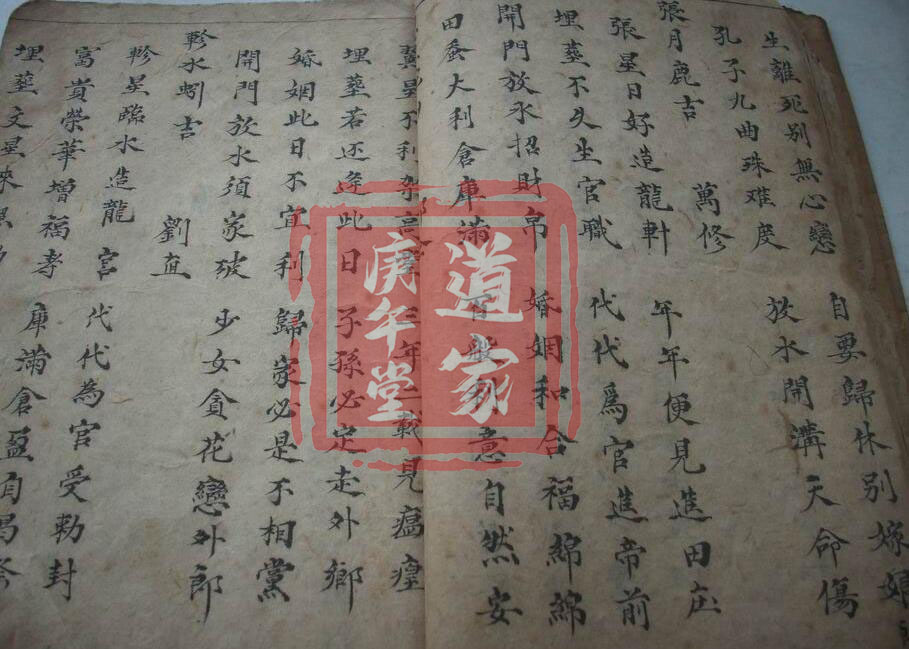 生離死別無心戀 自要歸休別嫁娘
孔子九曲殊难度 放水開溝天命傷
張月鹿吉 萬修
張星日好造龍軒 年年便見進田庄
埋葬不久生官職 代代爲官進帝前
開門放水招財帛 婚姻和合福綿綿
田蚕大利倉庫滿 百般利意自然安
翼星不利架高 三年二載見瘟瘴
埋葬若还逄此日 子孫必定走外鄉
婚姻此日不宜利 歸家必是不相黨
開門放水須家破 少女貪花戀外郎
軫水蚓吉 劉直
軫星臨水造龍宮 代代為官受勅封
富貴榮華增福寿 庫滿倉盈自昌
埋葬文星來
道家
庚午堂